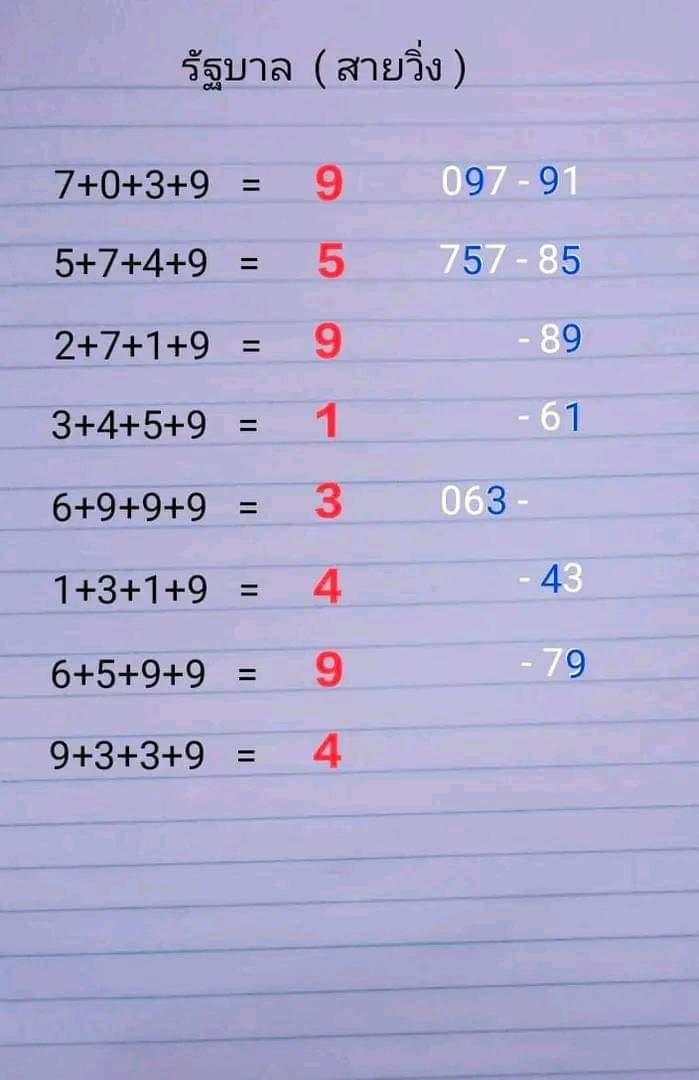 รัฐบาล ( สายวิ่ง )
7+0+3+9 = 9 097 - 91
5+7+4+9 = 5 757 - 85
2+7+1+9 = 9 - 89
3+4+5+9 = 1 - 61
6+9+9+9 = 3 063 -
1+3+1+9 = 4 - 43
6+5+9+9 = 9 - 79
9+3+3+9 = 4